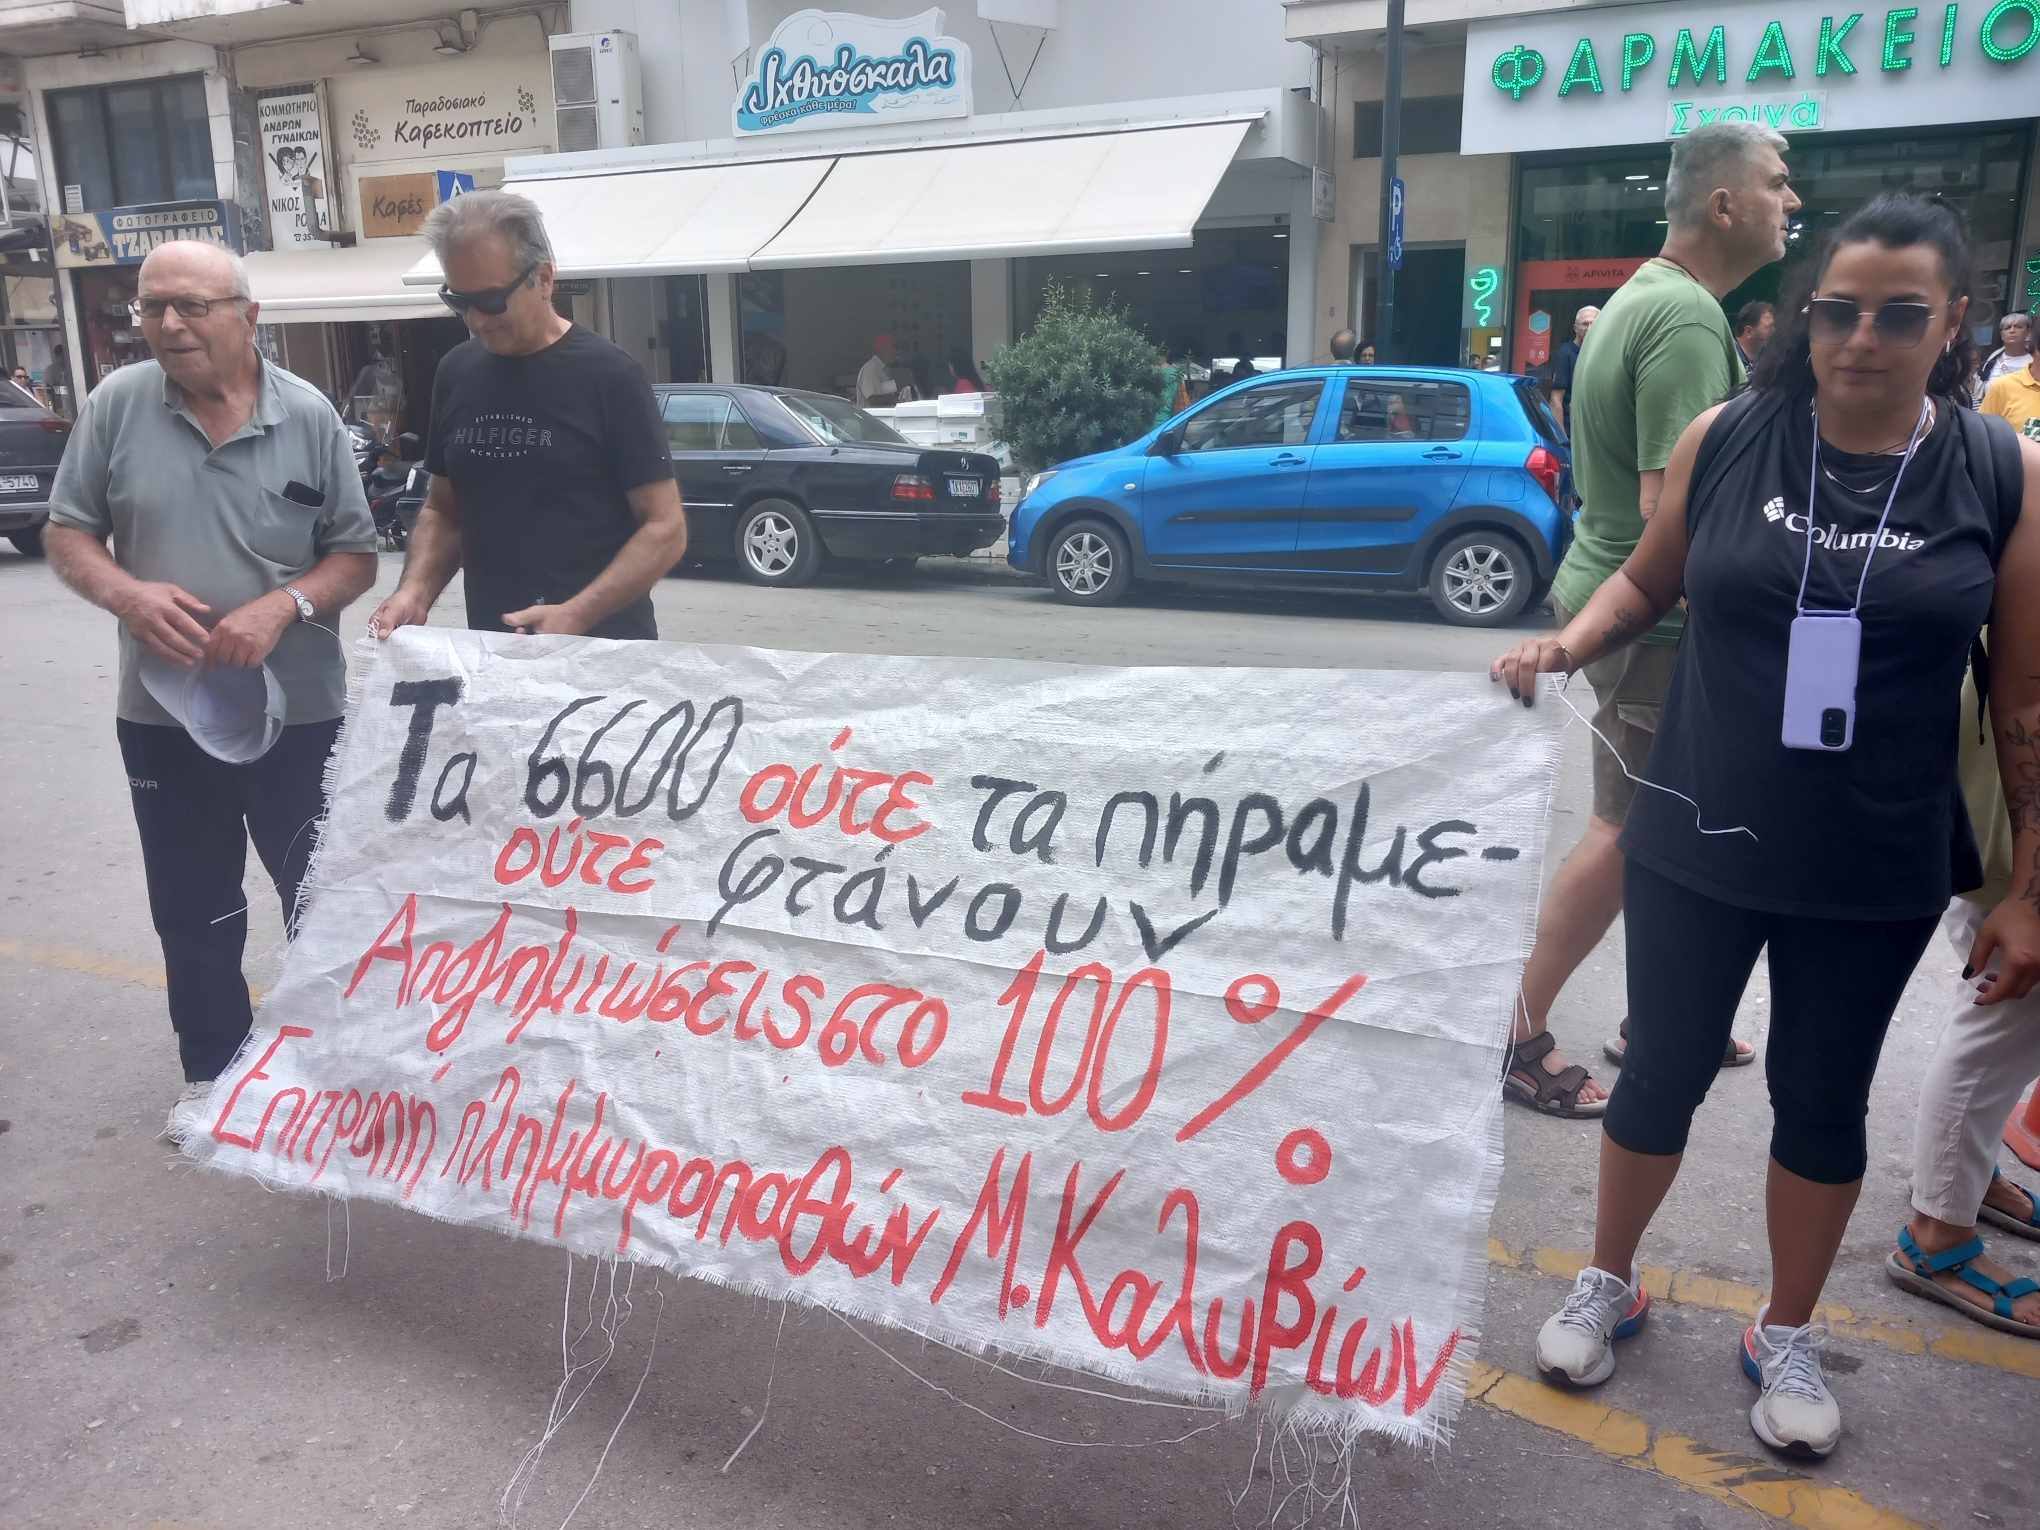 ΚΟΜΜΩΤΗΡΙΟ
ΑΝΔΡΩΝ
ΓΥΝΑΙΚΩΝ
ΝΙΚΟΣ
ΦΩΤΟΓΡΑΦΕΙΟ
Παραδοσιακό
Καφεκοπτείο
Καφές
Ιχθυόσκαλα
Φρέσκα κάθε μέρα!
ΦΑΡΜΑΚΕΙΟ
Σχοινά
APIVITA
P
ESTABLISHED
HILFIGER
MCMLXXXV
Columbia
Τα 6600 ούτε τα πήραμε-
ούτε φτάνουν
Αποζημιώσεις στο 100%
Επιτροπή πλημμυροπαθών Μ. Καλυβίων